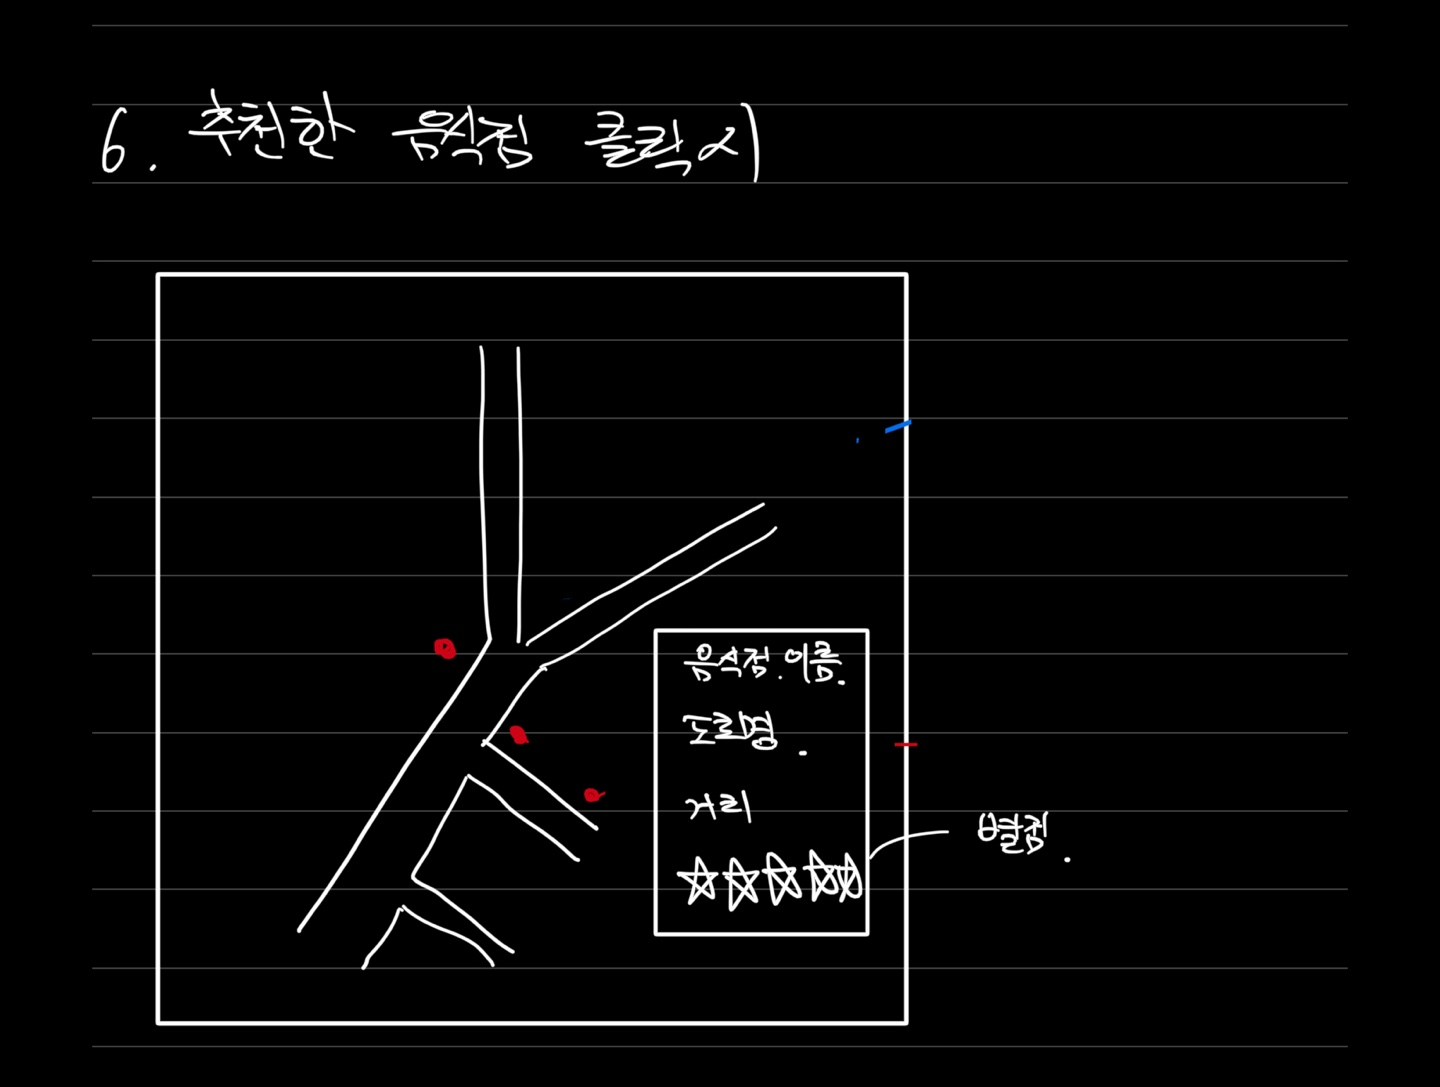 6. 추천한 음식점 클릭시
음식점.이름.
도로명.
거리
별점.